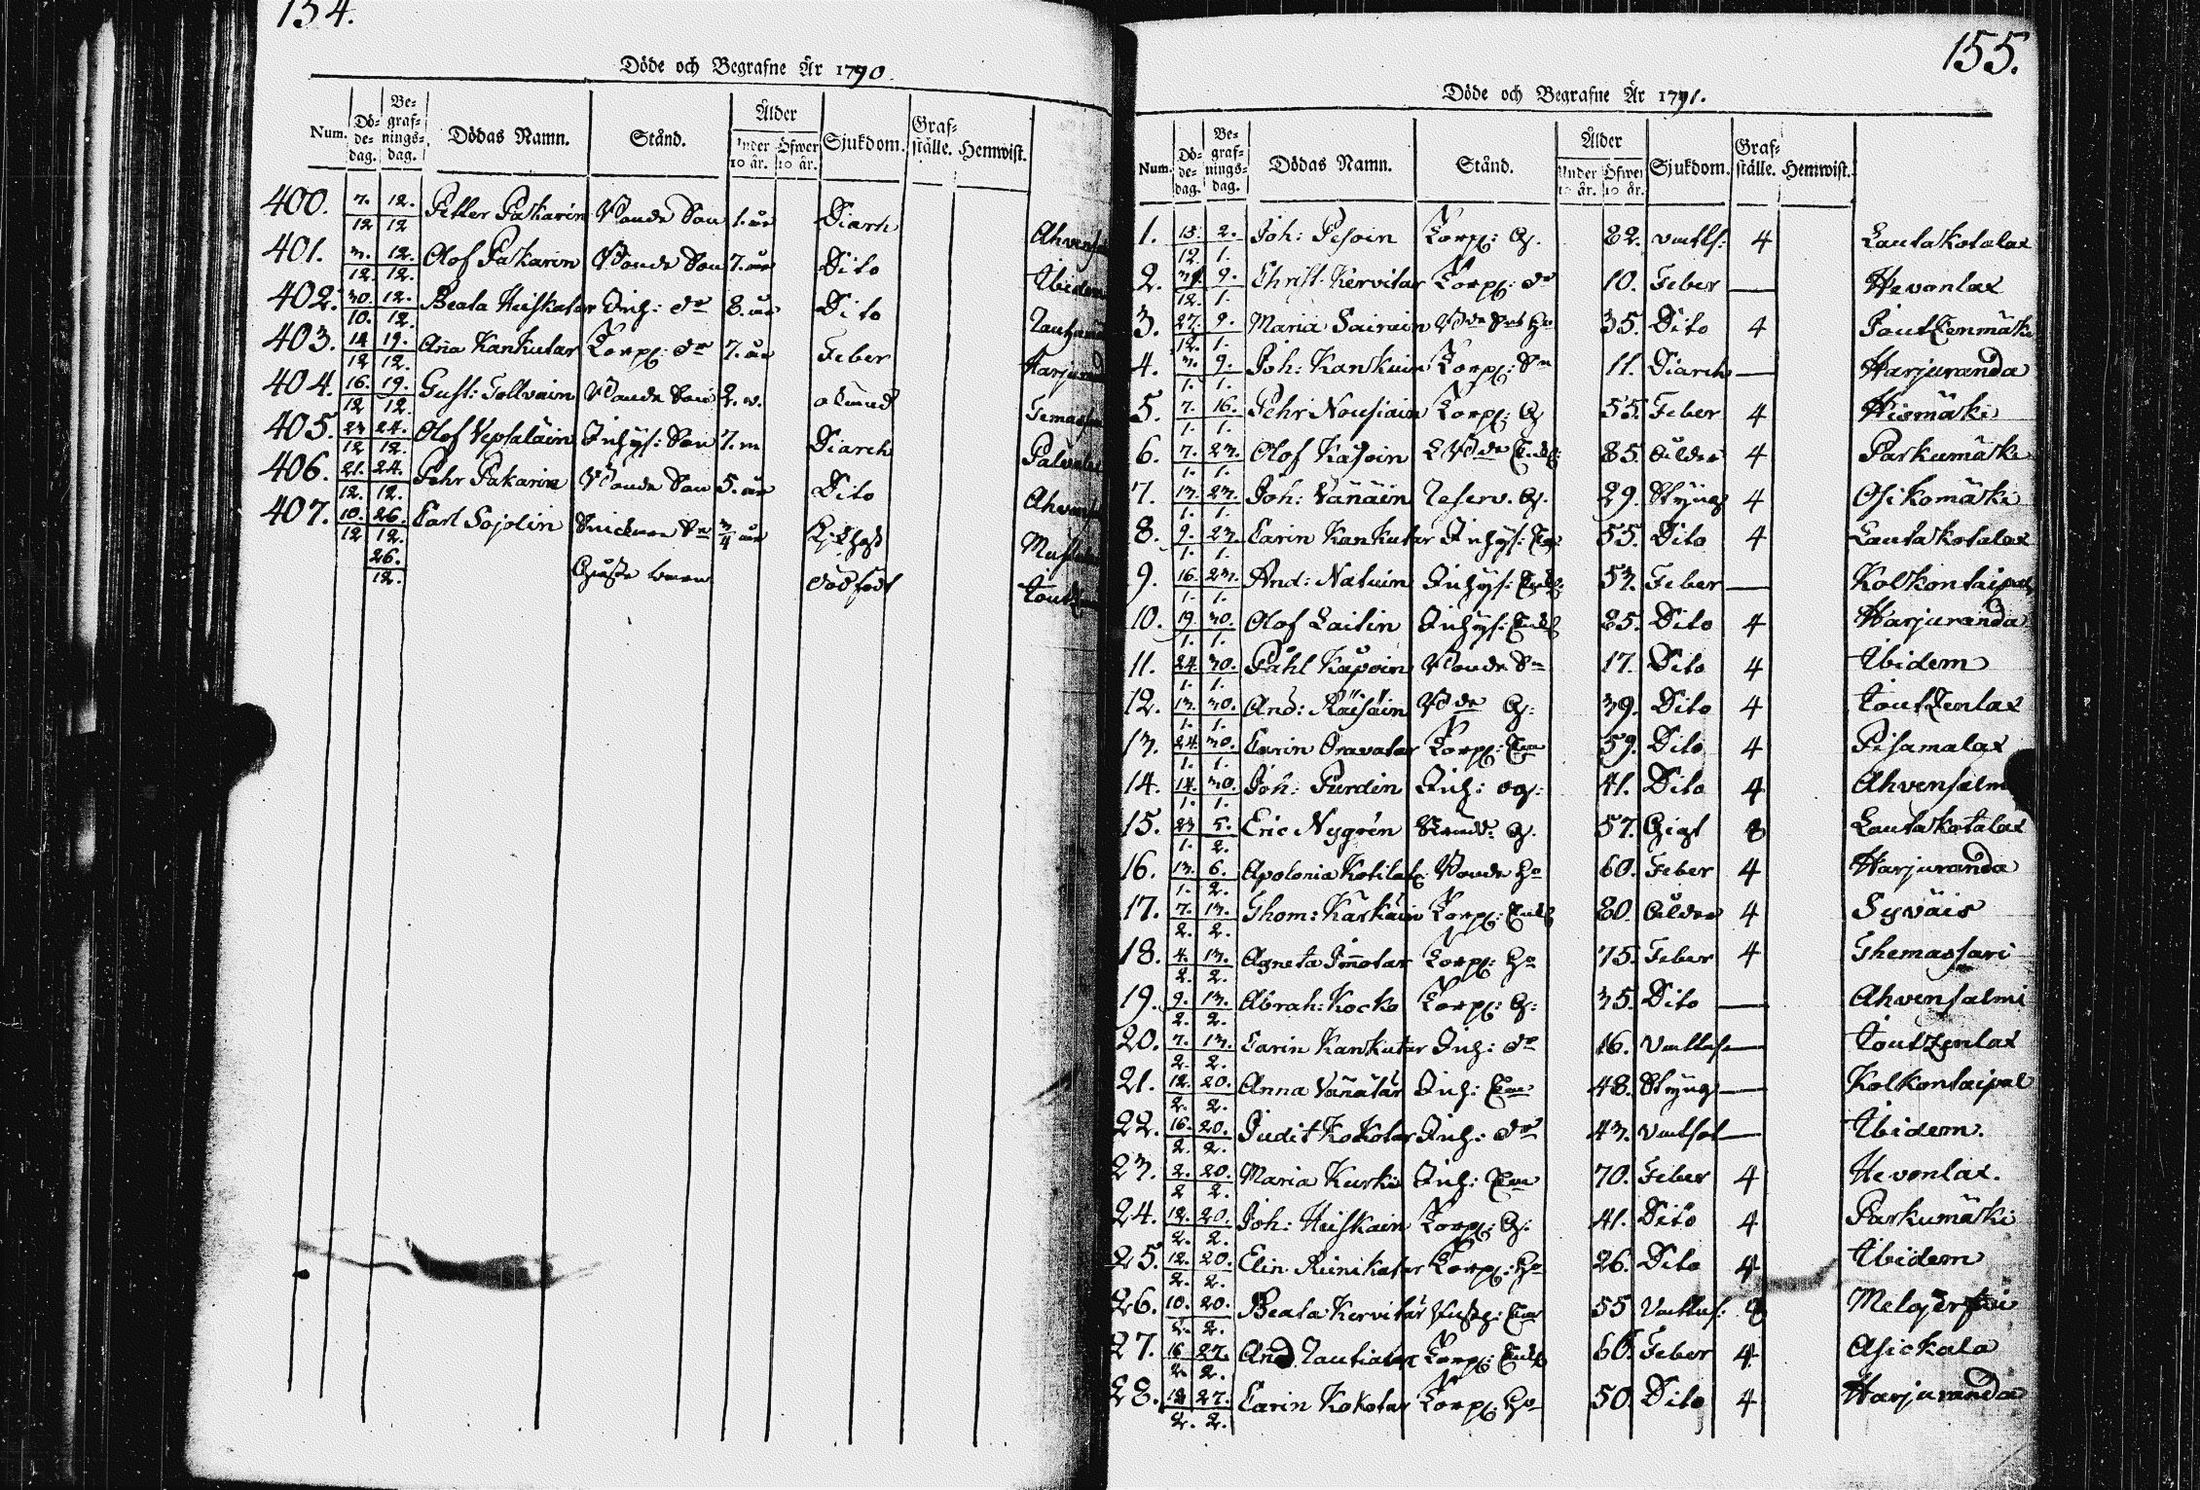 154.
Döde och Begrafne År 1790.
Num. Dö-de-dag. Be-graf-nings-dag. Dödas Namn. Stånd. Ålder Under 10 år. Öfwer 10 år. Sjukdom. Graf-ställe. Hemwist.
400. 7. 12. 12. 12 Petter Pakarin Bonde Son 1. år Diarh
401. 3. 12. 12. 12. Olof Pakarin Bonde Son 7. år Dito Ibidem
402. 30. 10. 12. 12. Beata Heiskatar Inh: dr 8. år Dito
403. 12 19. 12. Aña Kankutar Torp: dr 7. år Feber
404. 16. 12 19. 12. Gust: Bonde Son 2. v. okänd
405. 23 12 24. 12. Olof Vepsäläin Inhys: Son 7. m Diarrh
406. 21. 12. 24. 12. Pehr Pakarin Bonde Son 5. år Dito
407. 10. 12 26. 12. Carl Sojolin Snickare Sn 3/4 år
26. 12. dödfödt
155.
Döde och Begrafne År 1791.
Num. Dö-de-dag. Be-graf-nings-dag. Dödas Namn. Stånd. Ålder Under 10 år. Öfwer 10 år. Sjukdom. Graf-ställe. Hemwist.
1. 13. 12. 2. 1. Joh: Pesoin Torp: G. 82. 4 Lautakotalax
2. 12. 9. 1. Christ. Kervitar Torp: dr 10. Feber — Hevonlax
3. 27. 12. 9. 1. Maria Sairain 35. Dito 4
4. 3. 1. 9. 1. Joh: Kankuin Torp: Sn 11. Diarrh — Harjuranda
5. 7. 1. 16. 1. Pehr Nousiain Torp: G 55. Feber 4
6. 7. 1. 23. 1. Olof Käsoin 85. Ålder 4 Parkumäki
7. 13. 1. 23. 1. Joh: Vänäin Reserv. G. 29. Styng 4 Osikomäki
8. 9. 1. 23. 1. Carin Kankutar Inhys: 55. Dito 4 Lautakotalax
9. 16. 1. 23. 1. And: Natuin Inhys: Enkl: 53. Feber — Kolkontaipal
10. 19. 1. 30. 1. Olof Laitin Inhys: Enkl 85. Dito 4 Harjuranda
11. 24. 1. 30. 1. Påhl Kåpoin Bonde Sn 17. Dito 4 Ibidem
12. 13. 1. 30. 1. And: Räisäin Bde G: 39. Dito 4
13. 24. 1. 30. 1. Carin Oravatar Torp: Ea 59. Dito 4 Pisamalax
14. 14. 1. 30. 1. Joh: Purdin Inh: G: 41. Dito 4 Ahvensalmi
15. 23 1. 5. 2. Eric Nygrén G. 57. Gigt 8 Lautakotalax
16. 13. 1. 6. 2. Apolonia Kotilat: Bonde Ho 60. Feber 4 Harjuranda
17. 7. 2. 13. 2. Thom: Kärkäin Torp: Enkl 80. Ålder 4 Syväis
18. 4. 2. 13. 2. Agneta Im̃otar Torp: Ho 75. Feber 4 Themassari
19. 9. 2. 13. 2. Abrah: Kocko Torp: G: 35. Dito — Ahvensalmi
20. 7. 2. 13. 2. Carin Kankutar Inh: dr 16. —
21. 12. 2. 20. 2. Anna Vänätär Inh: Ea 48. Styng — Kolkontaipal
22. 16. 2. 20. 2. Judit Kokotar Inh: dr 43. — Ibidem.
23. 2. 2 20. 2. Maria Kurki Inh: Ea 70. Feber 4 Hevonlax.
24. 12. 2. 20. 2. Joh: Heiskain Torp: G: 41. Dito 4 Parkumäki
25. 12. 2. 20. 2. Elin Rünikatar Torp: Ho 26. Dito 4 Ibidem
26. 10. 2. 20. 2. Beata Kervitär Ea 55
27. 16 2. 27. 2. And. Torp: Enkl 66. Feber 4 Asickala
28. 18 2. 27. 2. Carin Kokotar Torp: Ho 50. Dito 4 Harjuranda